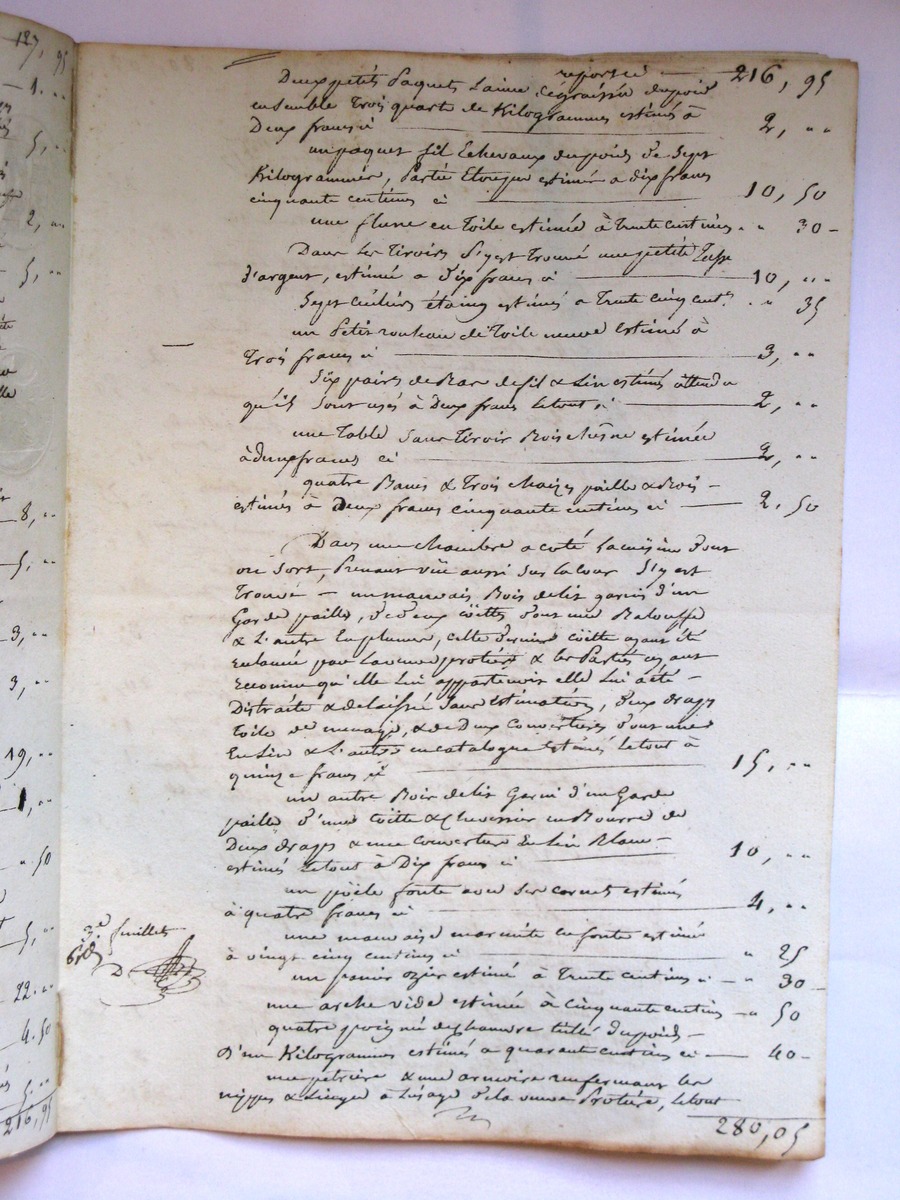 reportée — 216, 95
Deux petits Paquets Laine dégraissée du poid
ensemble Trois quart de Kilogrammes estimés à
Deux francs ci — 2, ..
un paquet fil Echevaux du poids de Sept
Kilogrammes, Partie Etoupe estimé a dix francs
cinquante centimes ci — 10, 50
une en Toile estimée à Trente Centimes . . 30 -
Dans les Tiroirs S'y est Trouvé une petite Tasse
d'argent, estimée a dix francs ci — 10, ..
Sept cuilières étaing estimés a Trente cinq cent.s . . 35
un Petit rouleau de Toile neuve Estimé à
Trois francs ci — 3, ..
Six pairs de Bas de fil & Lin estimés attendu
qu'ils Sont usés à Deux francs le tout ci — 2, ..
une Table Sans Tiroir Bois chêsne estimée
à deux francs ci — 2, ..
quatre Bancs & Trois chaizes paille & Bois -
estimés à Deux francs cinquante centimes ci — 2. 50
Dans une chambre a coté La cuisine d'ont
on Sort, Prenant vüe aussi Sur la Cour S'y est
Trouvé - un mauvais Bois de lit garni d'une
Garde paille, de deux coittes d'ont une Balouffe
& L'autre En plumes, cette derniere coitte ayant été
par La veuve protière & les Parties ayant
reconnu qu'elle Lui appartenoit elle Lui a été -
Distraite & delaissée Sans Estimation, deux draps
toile de menage, & de Deux Couvertures d'ont une
En Lin & L'autre en catalogne Estimés le tout à
quinze francs ci — 15, ..
un autre Bois de lit Garni d'un Garde
paille d'une Coitte & Chevessier en Bourre de
Deux draps & une Couverture En Lin Blanc -
estimés Le tout à Dix francs ci — 10, ..
un poële fonte avec Ses cornets estimés
à quatre francs ci — 4, ..
une mauvaise marmite en fonte estimée
à vingt cinq centimes ci — " 25
un panier ozier estimé à Trente centimes ci - " 30 -
une arche vide estimée à Cinquante centimes - " 50
quatre poigné de chanvre tillé du poids -
D'un Kilogrammes estimés a quarante centimes ci — 40 -
une petrière & une armoire renfermant les
nippes & Linges à L'usage de la veuve Protière, le tout
280,05
3.e feuillet
D
127, 95
1. ..
5, ..
2, ..
5, ..
8, ..
5, ..
3, ..
3, ..
19, ..
1, ..
" 50
5, ..
22. ..
4. 50
5. ..
216, 95